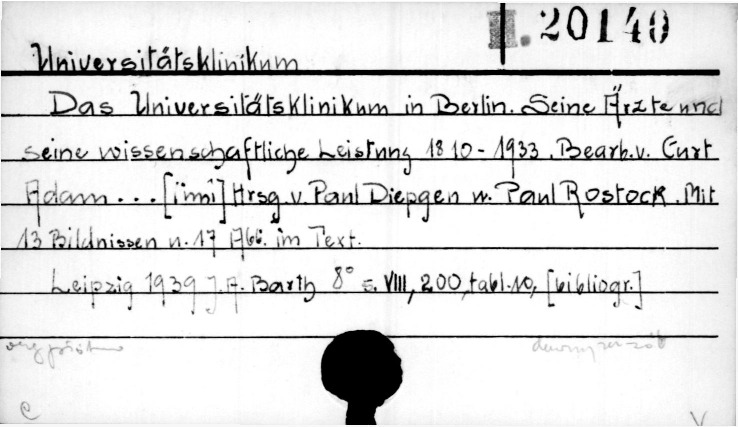 II. 20140
Universitätsklinikum
Das Universitätsklinikum in Berlin. Seine Ärzte und
seine wissenschaftliche Leistung 1810-1933. Bearb. v. Curt
Adam... [i inni] Hrsg. v. Paul Diepgen u. Paul Rostock. Mit
13 Bildnissen u. 17 Abb. im Text.
Leipzig 1939 J. A. Barth 8° s. VIII, 200, tabl. 10, [bibliogr.]
C V